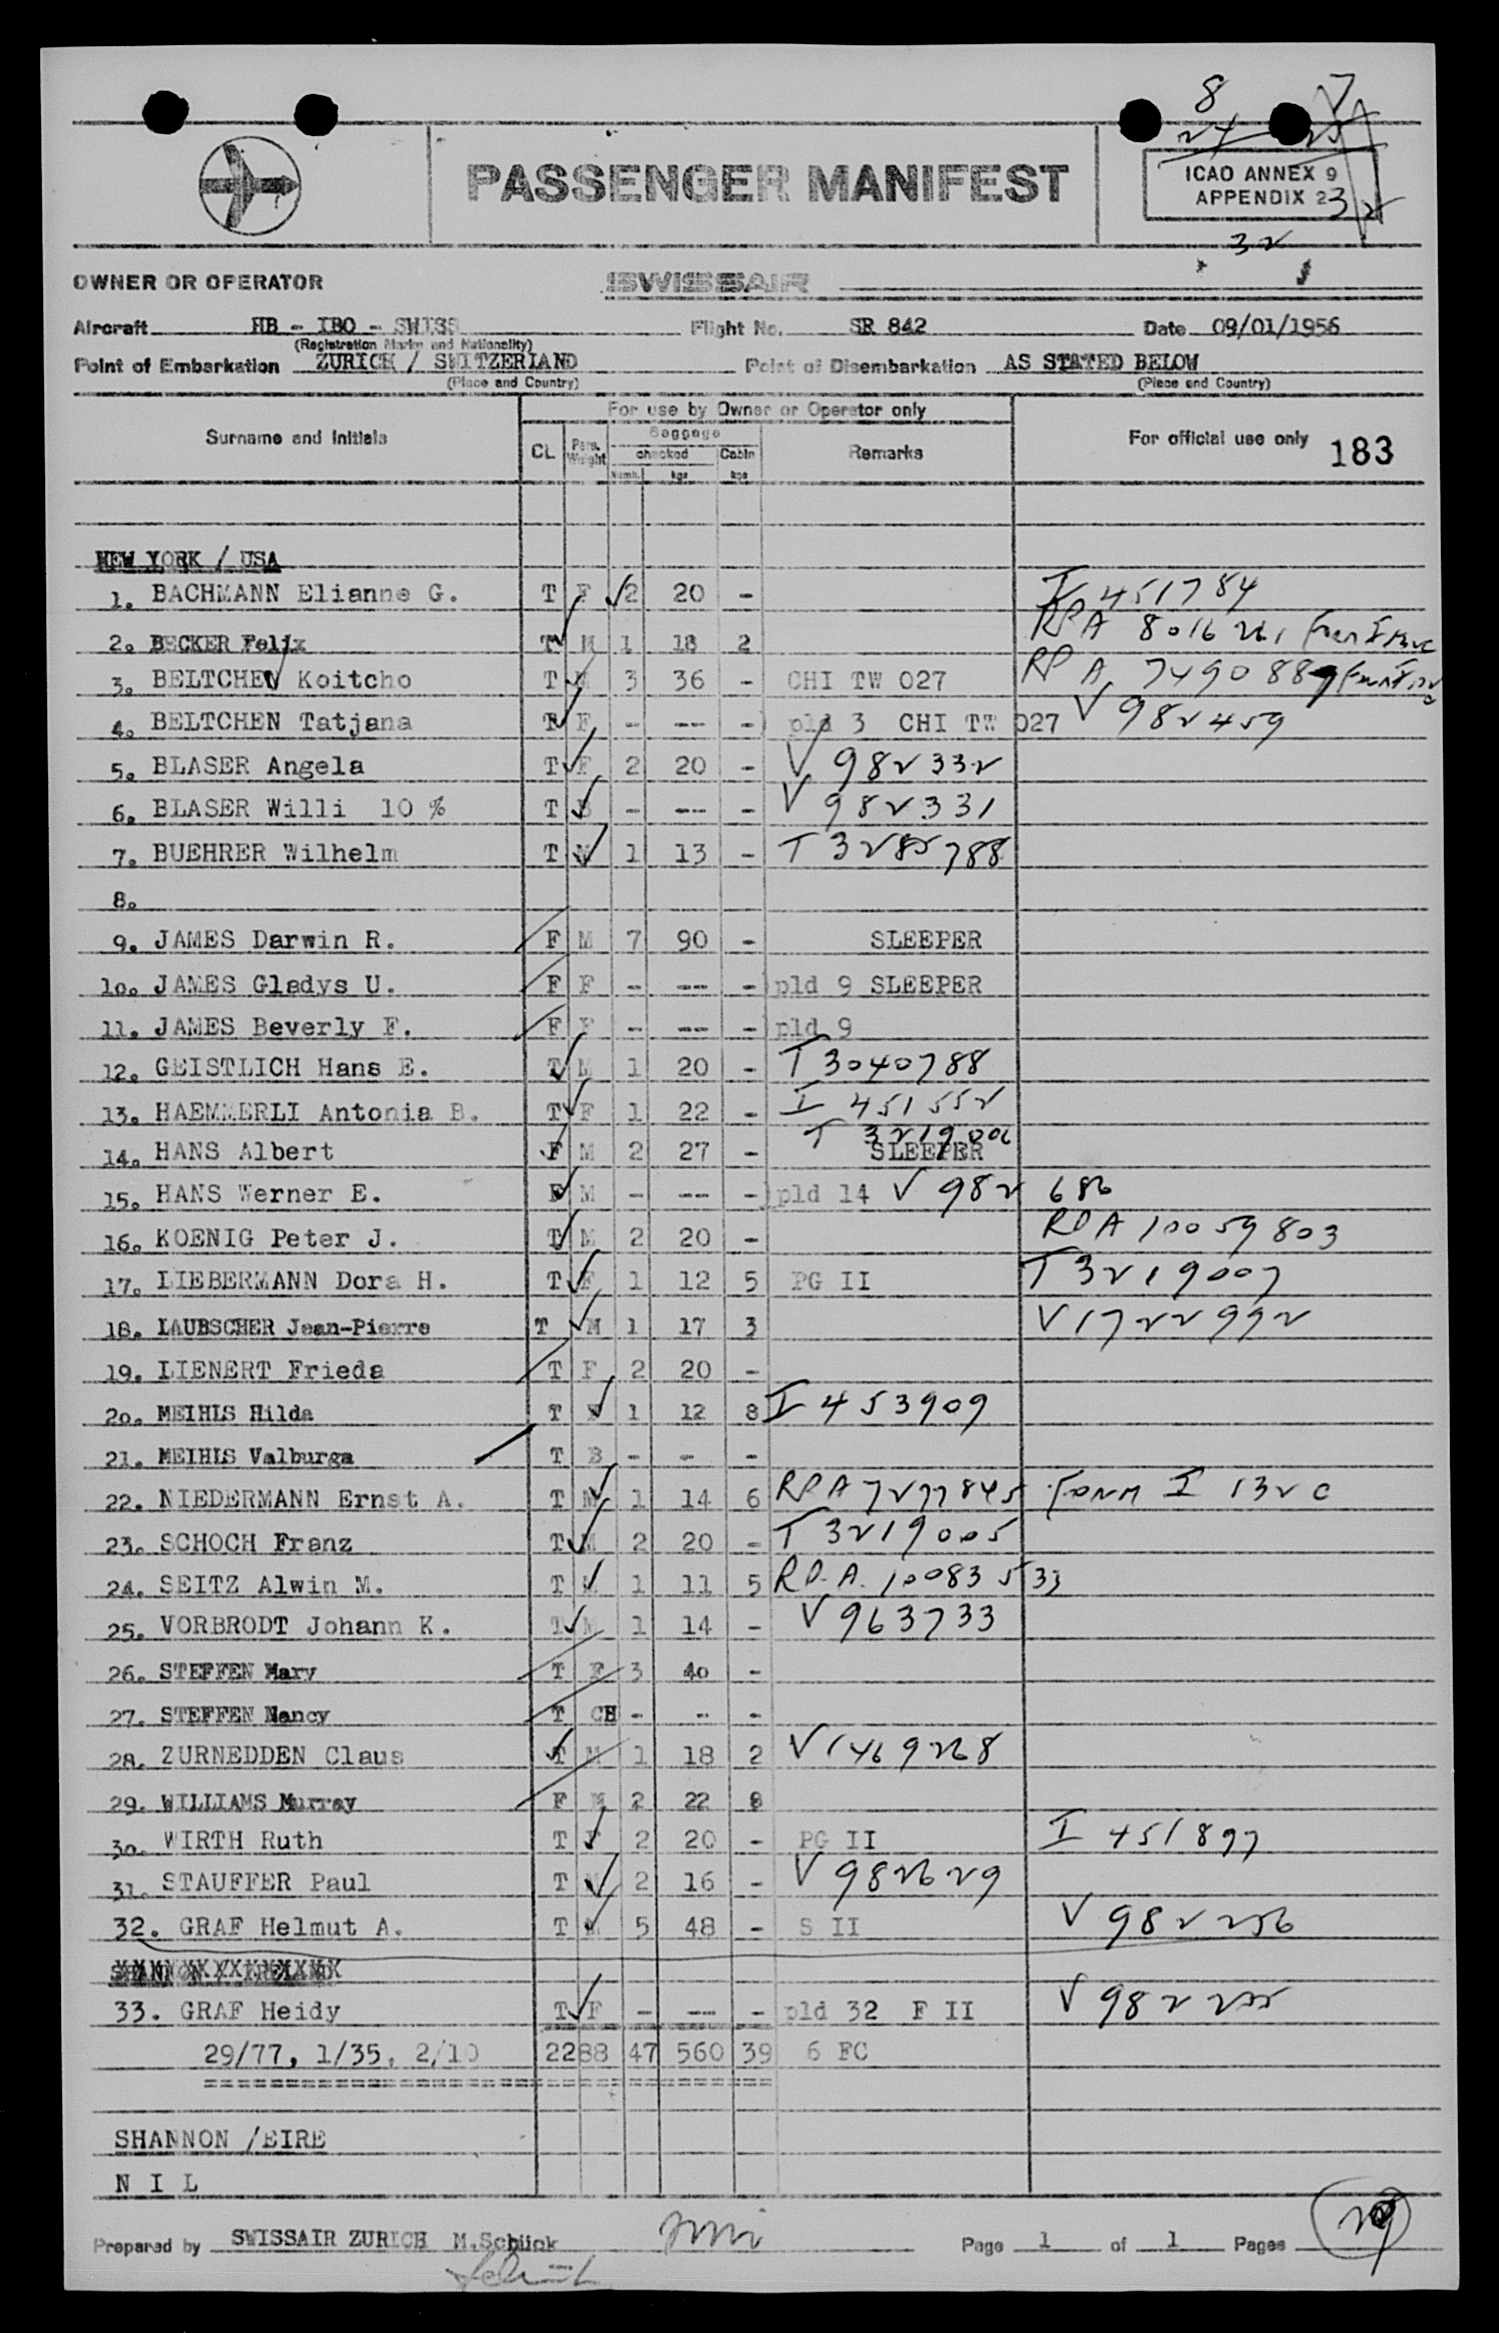 8 7
24 25
PASSENGER MANIFEST
ICAO ANNEX 9
APPENDIX 2
32
32
OWNER OR OPERATOR SWISSAIR
Aircraft HB - IBO - SWISS Flight No. SR 842 Date 09/01/1956
(Registration Marks and Nationality)
Point of Embarkation ZURICH / SWITZERLAND Point of Disembarkation AS STATED BELOW
(Place and Country) (Place and Country)
For use by Owner or Operator only
Surname and Initials CL Pers. Weight Baggage checked Cabin Remarks For official use only 183
Numb. kgs kgs
NEW YORK / USA
1. BACHMANN Elianne G. T F 2 20 - I 451784
2. BECKER Felix T M 1 18 2 RPA 8016261
3. BELTCHEV Koitcho T M 3 36 - CHI TW 027 RP A 7490889
4. BELTCHEN Tatjana T F - --- -) pld 3 CHI TW 027 V 982459
5. BLASER Angela T F 2 20 - V 982332
6. BLASER Willi 10 % T B - --- - V 982331
7. BUEHRER Wilhelm T M 1 13 - T 3285788
8.
9. JAMES Darwin R. F M 7 90 - SLEEPER
10. JAMES Gladys U. F F - --- -)pld 9 SLEEPER
11. JAMES Beverly F. F F - --- -)pld 9
12. GEISTLICH Hans E. T M 1 20 - T 3040788
13. HAEMMERLI Antonia B. T F 1 22 - I 451552
14. HANS Albert F M 2 27 - T 3219006 SLEEPER
15. HANS Werner E. F M - --- -)pld 14 V 982 686
16. KOENIG Peter J. T M 2 20 - RPA 10059803
17. LIEBERMANN Dora H. T F 1 12 5 PG II T 3219007
18. LAUBSCHER Jean-Pierre T M 1 17 3 V 1722992
19. LIENERT Frieda T F 2 20 -
20. MEIHLS Hilda T F 1 12 8 I 453909
21. MEIHLS Valburga T B - - -
22. NIEDERMANN Ernst A. T M 1 14 6 RPA 7277845 FORM I 132 C
23. SCHOCH Franz T M 2 20 - T 3219005
24. SEITZ Alwin M. T M 1 11 5 R.P.A. 10083533
25. VORBRODT Johann K. T M 1 14 - V 963733
26. STEFFEN Mary T F 3 40 -
27. STEFFEN Nancy T CH - -- -
28. ZURNEDDEN Claus T M 1 18 2 V 1469268
29. WILLIAMS Murray F M 2 22 8
30. WIRTH Ruth T F 2 20 - PG II I 451897
31. STAUFFER Paul T M 2 16 - V 982629
32. GRAF Helmut A. T M 5 48 - S II V 982256
33. GRAF Heidy T F - --- - pld 32 F II V 982255
29/77, 1/35, 2/10 2288 47 560 39 6 FC
SHANNON /EIRE
N I L
Prepared by SWISSAIR ZURICH M.Schück Page 1 of 1 Pages